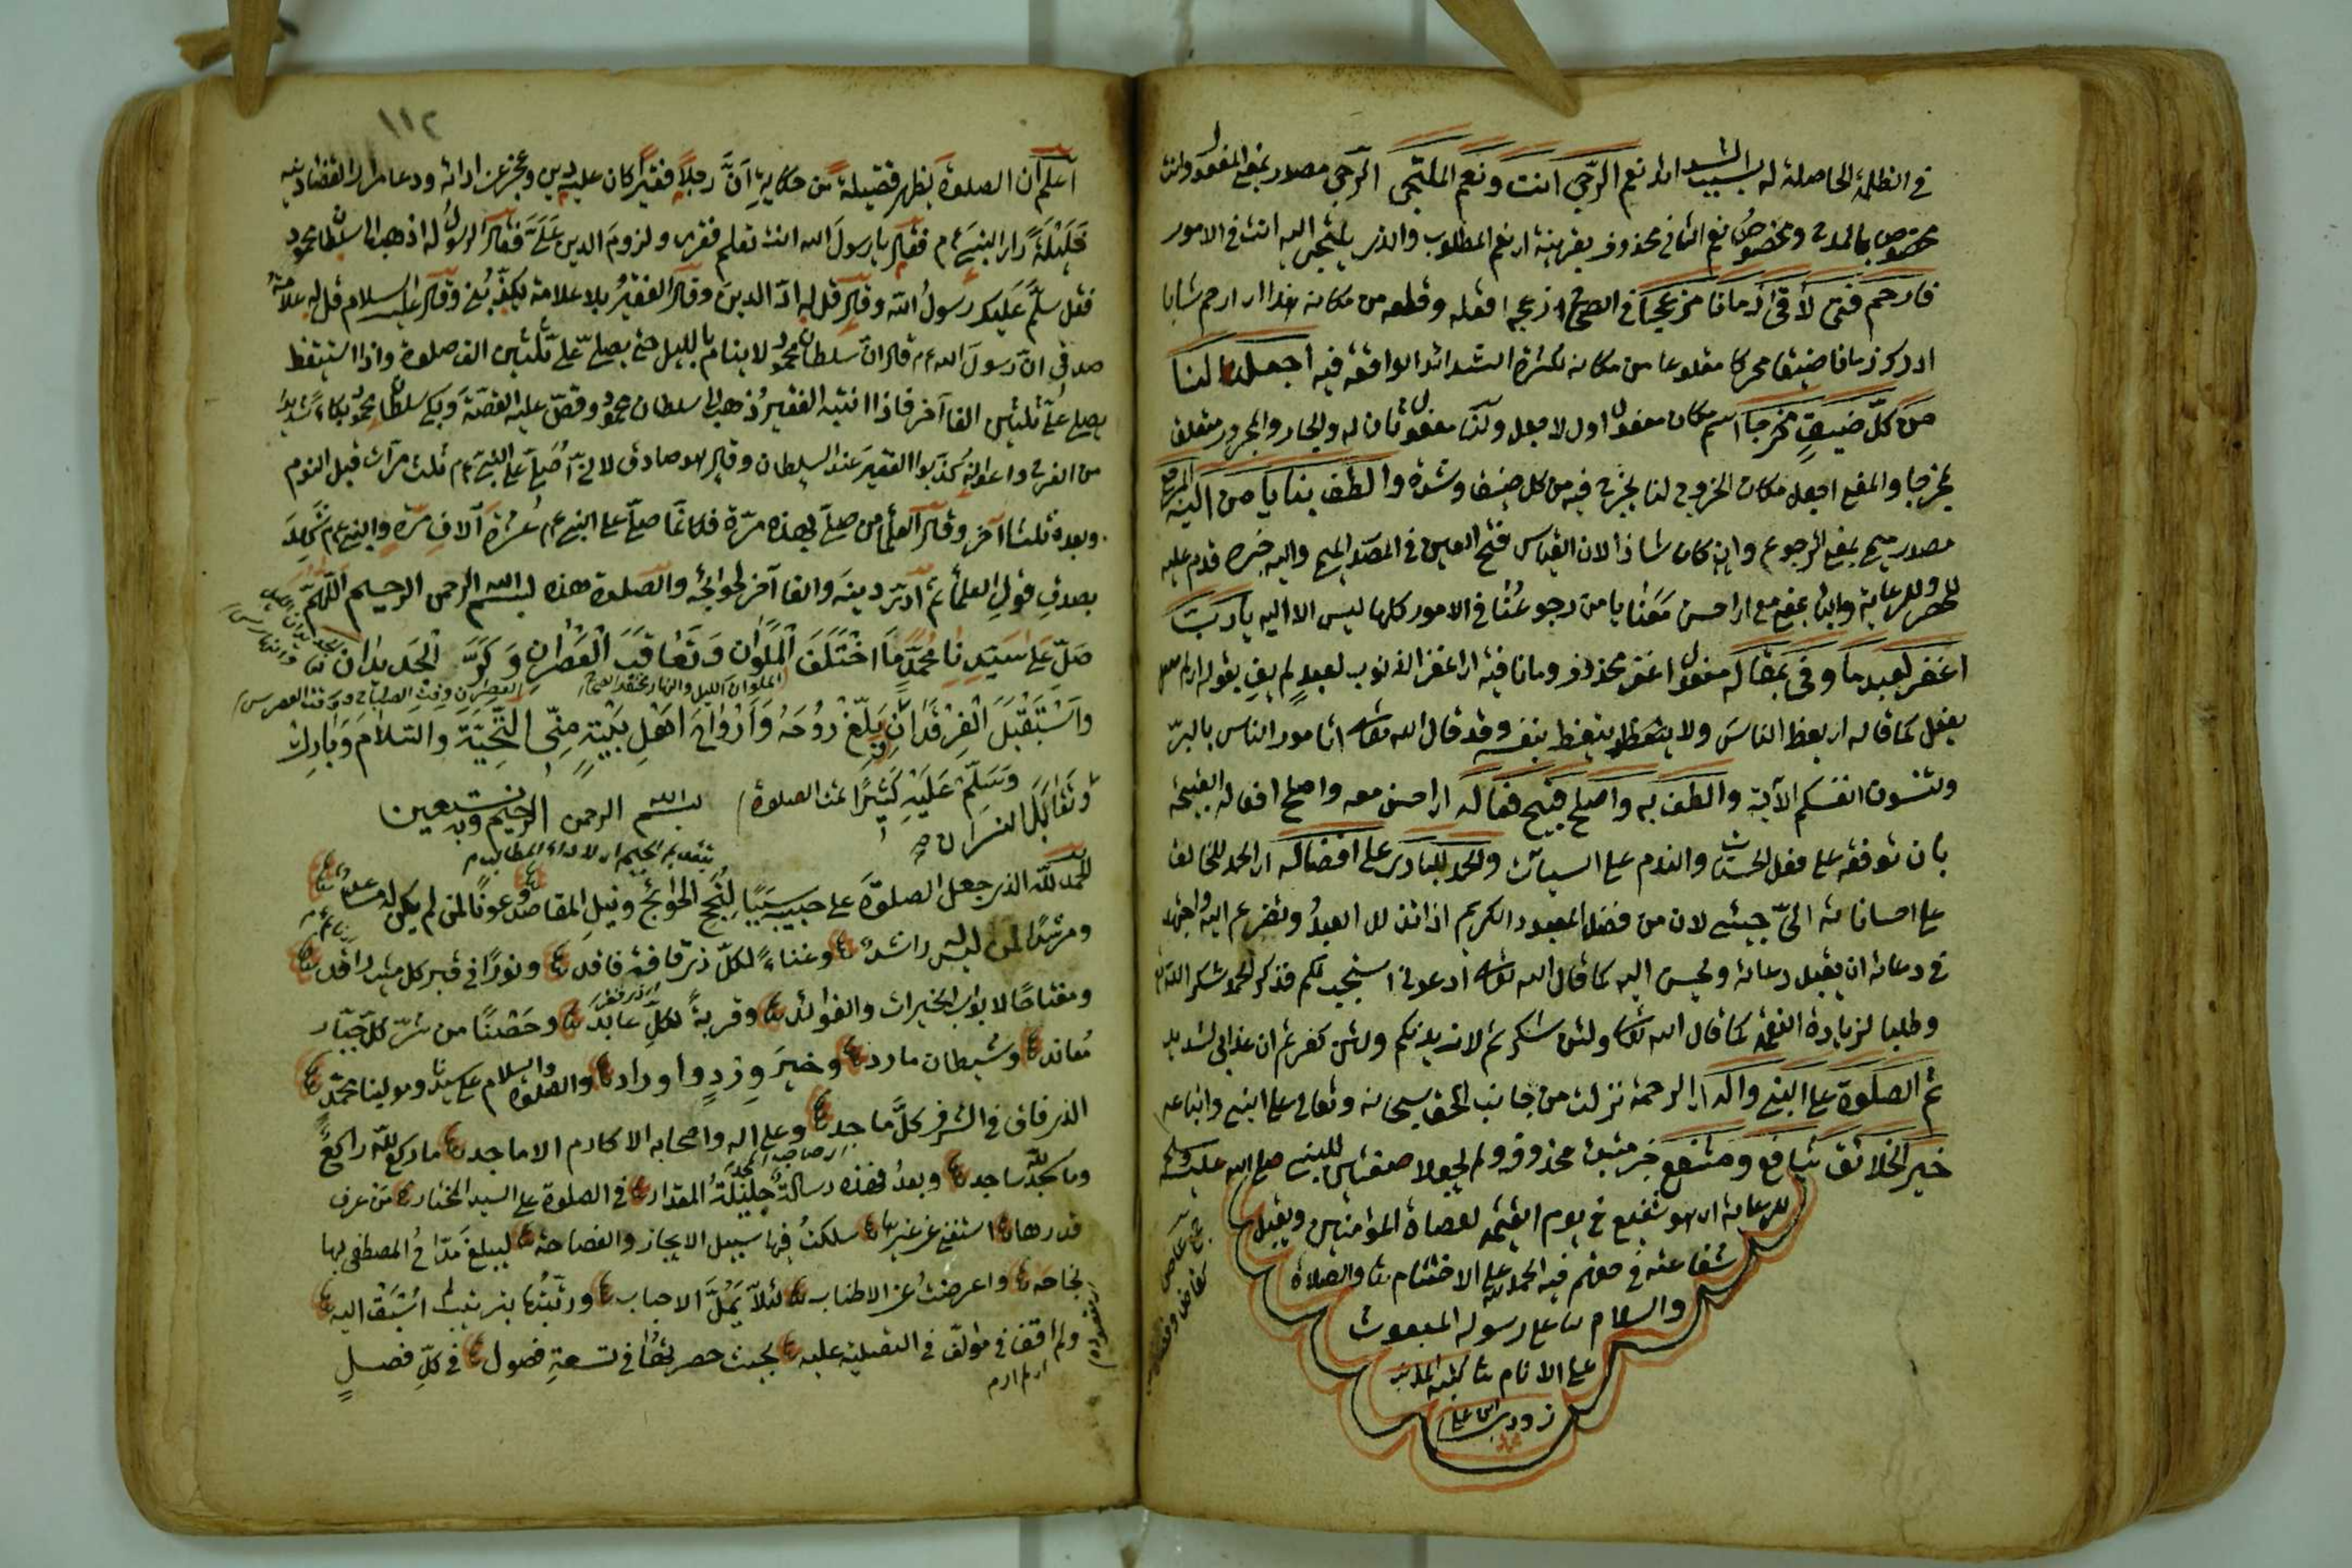 في الظلمة الحاصلة له بسبب الشدائد نعم الرجى انت ونعم الملتجى الرجى مصدر بمعنى المفعول وانت
مخصوص بالمدح ومخصوص نعم الثانى محذوف بقرينة اى نعم المطلوب والذى يلتجى اليه انت فى الامور
فارحم فتى لاقى زمانا مزعجا فى الصحاح ازعجه اقلعه وقلعه من مكانه هذا اى ارحم شابا
ادرك زمانا ضيقا محركا مقلوعا من مكانه لكثرة الشدائد الواقعة فيه اجعل لنا
من كل ضيق مخرجا اسم مكان مفعول اول لاجعل ولنا مفعول ثان له والجار والمجرور متعلق
بمخرجا والمعنى اجعل مكان الخروج لنا نخرج فيه من كل ضيق وشدة والطف بنا يا من اليه المرجع
مصدر ميمى بمعنى الرجوع وان كان شاذا لان القياس فتح العين فى المصدر الميمى واليه خبره قدم عليه
للحصر وللرعاية والباء بمعنى مع اى احسن معنا يا من رجوعنا فى الامور كلها ليس الا اليه يا رب
اغفر لعبد ما وفى بمقاله مفعول اغفر محذوف وما نافية اى اغفر الذنوب لعبد لم يف بقوله
يفعل كما قاله اى يعظ الناس ولا يتعظ بنفسه وقد قال الله تعالى اتامرون الناس بالبر
وتنسون انفسكم الآية والطف به واصلح قبيح فعاله اى احسن معه واصلح افعاله القبيحة
بان توفقه على فعل الحسنات والندم على السيآت والحمد للبارى على افضاله اى الحمد للخالق
على احساناته الى لان من فضل المعبود الكريم اذا تذلل العبد وتضرع اليه
فى دعائه ان يقبل دعائه ويحسن اليه كما قال الله تعالى ادعونى استجب لكم فذكر الحمد شكرا
وطلبا لزيادة النعمة كما قال الله تعالى ولئن شكرتم لازيدنكم ولئن كفرتم ان عذابى لشديد
ثم الصلوة على النبى واله اى الرحمة نزلت من جانب الحق سبحانه وتعالى على النبى واتباعه
خير الخلائق شافع ومشفع خبر مبتدأ محذوف صلى الله عليه وسلم
للرعاية اى هو شفيع فى يوم القيمة لعصاة المؤمنين ويقبل
شفاعته فى حقهم فيه الحمد لله على الاختتام والصلاة
والسلام على رسوله المبعوث
على الانام
اعلم ان الصلوة يظهر فضيلة من حكاية ان رجلا فقيرا كان عليه دين وعجز عن ادائه ودعا مرارا
فليلة رأى النبى عم فقال يا رسول الله انت تعلم فقرى ولزوم الدين على فقال الرسول له اذهب الى سلطان محمود
فقل سلم عليك رسول الله وقال قل له اد الدين وقال الفقير بلا علامة يكذبنى وقال عليه السلام قل له علامة
صدقى ان رسول الله عم قال ان سلطان محمود لا ينام بالليل حتى يصلى على ثلثين الف صلوة واذا استيقظ
يصلى على ثلثين الفا آخر فاذا انتبه الفقير ذهب الى سلطان محمود وقص عليه القصة وبكى سلطان محمود بكاء شديدا
من الفرح واعوانه كذبوا الفقير عند السلطان وقال هو صادق لانى اصلى على النبى عم ثلث مرات قبل النوم
وبعده ثلثا آخر وقال العلماء من صلى بهذه مرة فكانما صلى على النبى عم عشرة آلاف مرة والنبى عم شهد
بصدق قول العلماء ثم ادى دينه والفا آخر لحوائجه والصلوة هذه بسم الله الرحمن الرحيم اللهم
صل على سيدنا محمد ما اختلف الملوان وتعاقب العصران وكر الجديدان
الملوان الليل والنهار
واستقبل الفرقدان بلغ روحه وارواح اهل بيته منى التحية والسلام وبارك
وسلم عليه كثيرا تمت الصلوة
بسم الله الرحمن الرحيم وبه نستعين
الحمد لله الذى جعل الصلوة على حبيبه سببا لنجح الحوائج ونيل المقاصد وعونا لمن لم يكن له
ومرشدا لمن ليس له راشد وغناء لكل ذى فاقة فاقد ونورا فى قبر كل ميت راقد
ومفتاحا لابواب الخيرات والفوائد وقربة لكل عابد وحصنا من شر كل جبار
معاند وشيطان مارد وخير ورد واوراد والصلوة والسلام على سيدنا ومولينا محمد
الذى فاق فى الشرف كل ماجد وعلى اله واصحابه الاكارم الاماجد ما ركع لله راكع
وما سجد لله ساجد وبعد فهذه رسالة جليلة المقدار فى الصلوة على السيد المختار من عرف
قدرها استغنى عن غيرها سلكت فيها سبيل الايجاز والفصاحة ليبلغ مداح المصطفى بها
نجاحه واعرضت عن الاطناب لئلا يمل الاحباب ورتبتها بترتيب لم اسبق اليه
ولم اقف فى مؤلف فى التصلية عليه بحيث حصرتها فى تسعة فصول فى كل فصل